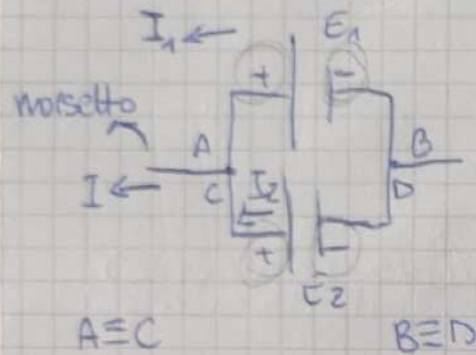 I₁ ← E₁
+ -
morsetto
A B
I ← C I₂ D
+ -
E2
A≡C B≡D